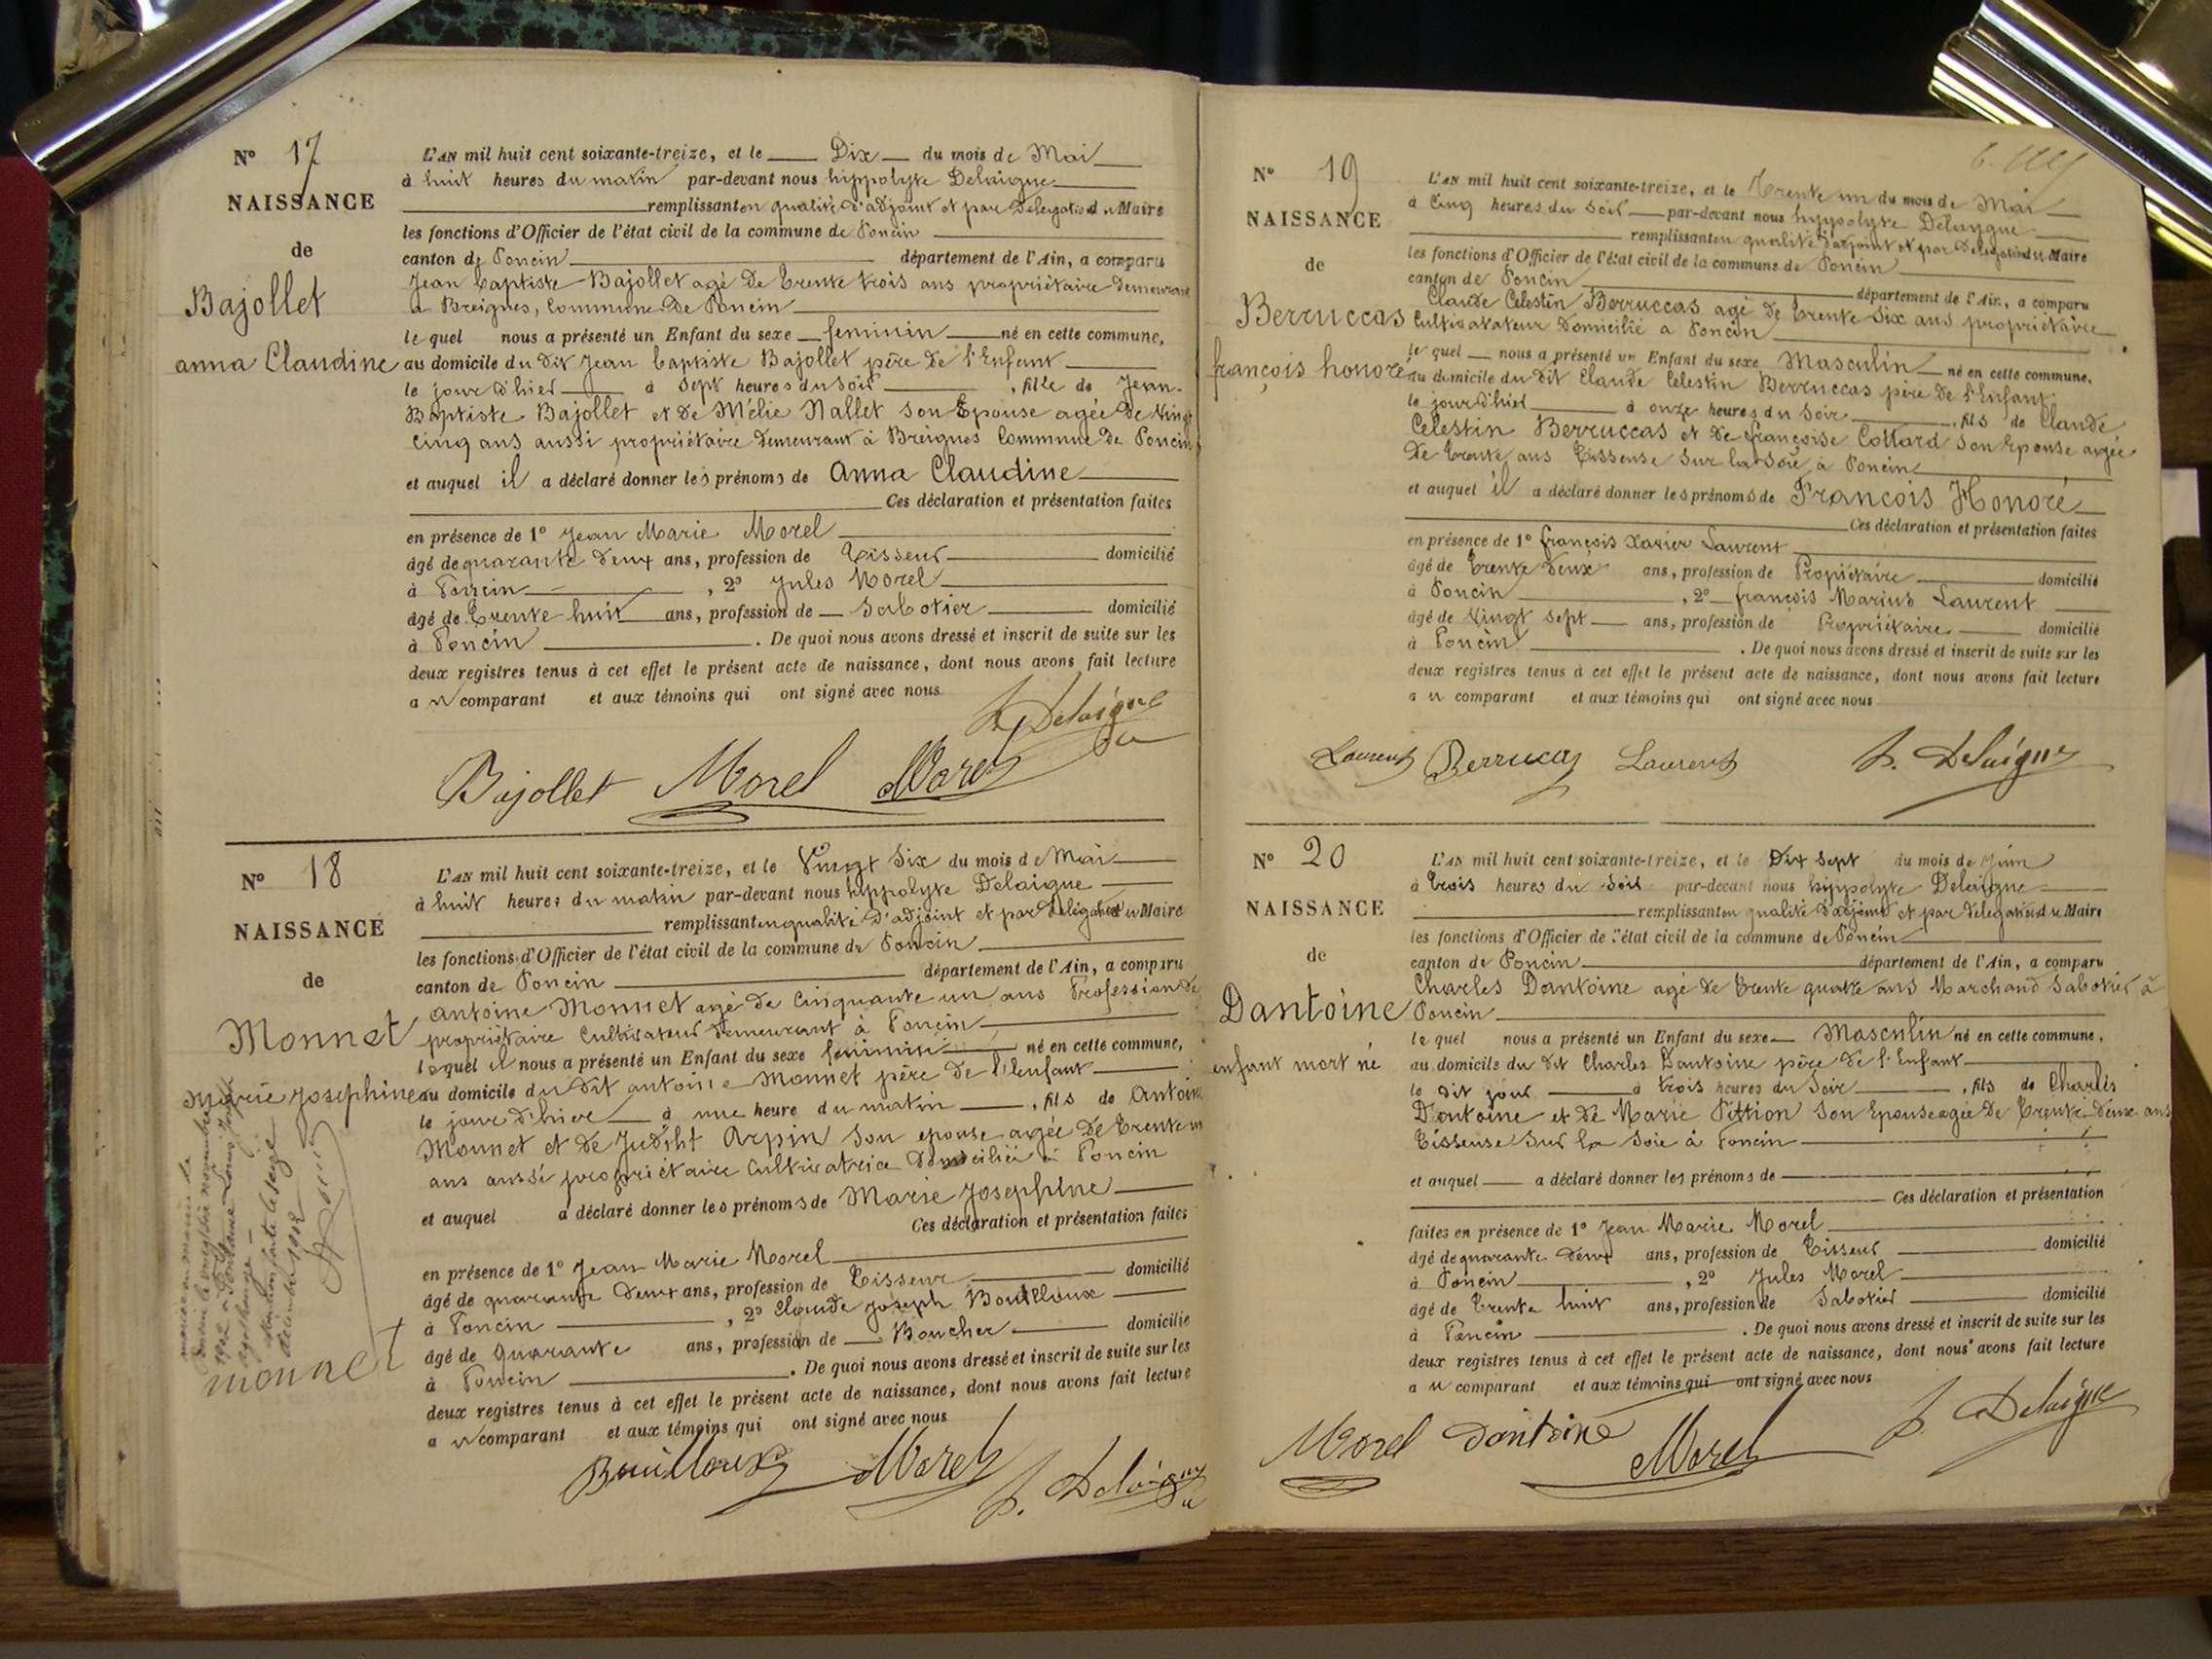 N° 17
NAISSANCE
de
Bajollet
anna Claudine
L'AN mil huit cent soixante-treize, et le Dix du mois de Mai
à huit heures du matin par-devant nous hippolyte Delaigue
remplissant en qualité d'adjoint et par Délegation du Maire
les fonctions d'Officier de l'état civil de la commune de Poncin
canton de Poncin département de l'Ain, a comparu
Jean baptiste Bajollet agé de trente trois ans propriétaire demeurant
a Breignes, Commune De Poncin
le quel nous a présenté un Enfant du sexe feminin né en cette commune,
au domicile du dit Jean baptiste Bajollet père de l'Enfant
le jour d'hier à sept heures du soir, fille de Jean
Baptiste Bajollet et de Mélie Nallet son Epouse agée de Vingt
cinq ans aussi propriétaire demeurant à Breignes Commune de Poncin
et auquel il a déclaré donner les prénoms de Anna Claudine
Ces déclaration et présentation faites
en présence de 1° Jean Marie Morel
âgé de quarante deux ans, profession de Tisseur domicilié
à Poncin, 2° Jules Morel
âgé de Trente huit ans, profession de Sabotier domicilié
à Poncin. De quoi nous avons dressé et inscrit de suite sur les
deux registres tenus à cet effet le présent acte de naissance, dont nous avons fait lecture
au comparant et aux témoins qui ont signé avec nous
h. Delaigue
Bajollet Morel Morel
N° 18
NAISSANCE
de
Monnet
Marie Josephine
L'AN mil huit cent soixante-treize, et le Vingt Six du mois de Mai
à huit heures du matin par-devant nous hyppolyte Delaigue
remplissant en qualité d'adjoint et par Délégation du Maire
les fonctions d'Officier de l'état civil de la commune de Poncin
canton de Poncin département de l'Ain, a comparu
antoine Monnet agé de Cinquante un ans Profession de
propriétaire Cultivateur demeurant à Poncin
lequel il nous a présenté un Enfant du sexe feminin né en cette commune,
au domicile du dit antoine Monnet père de l'enfant
le jour d'hier à une heure du matin, fils de Antoine
Monnet et de Judiht Arpin Son epouse agée de Trente un
ans aussi propriétaire Cultivatrice domiciliée à Poncin
et auquel a déclaré donner les prénoms de Marie Josephine
Ces déclaration et présentation faites
en présence de 1° Jean Marie Morel
âgé de quarante Deux ans, profession de Tisseur domicilié
à Poncin, 2° Claude Joseph Bouilloux
âgé de Quarante ans, profession de Boucher domicilié
à Poncin. De quoi nous avons dressé et inscrit de suite sur les
deux registres tenus à cet effet le présent acte de naissance, dont nous avons fait lecture
au comparant et aux témoins qui ont signé avec nous
monnet
Bouilloux Morel h. Delaigue
N° 19
NAISSANCE
de
Berruccas
françois honoré
L'AN mil huit cent soixante-treize, et le Trente un du mois de Mai
à Cinq heures du Soir par-devant nous hyppolyte Delaigue
remplissant en qualité d'adjoint et par Délegation du Maire
les fonctions d'Officier de l'état civil de la commune de Poncin
canton de Poncin département de l'Ain, a comparu
Claude Celestin Berruccas agé de trente Six ans propriétaire
Cultivatateur Domicilié a Poncin
le quel nous a présenté un Enfant du sexe Masculin né en cette commune,
au domicile du dit Claude Celestin Berruccas père De l'Enfant
le jour d'hier à onze heures du Soir, fils de Claude
Celestin Berruccas et de françoise Collard Son Epouse agée
de trente ans Tisseuse Sur la soie à Poncin
et auquel il a déclaré donner les prénoms de François Honoré
Ces déclaration et présentation faites
en présence de 1° françois Xavier Laurent
âgé de Trente Deux ans, profession de Propriétaire domicilié
à Poncin, 2° françois Marius Laurent
âgé de Vingt Sept ans, profession de Propriétaire domicilié
à Poncin. De quoi nous avons dressé et inscrit de suite sur les
deux registres tenus à cet effet le présent acte de naissance, dont nous avons fait lecture
au comparant et aux témoins qui ont signé avec nous
Laurent Berrucas Laurent h. Delaigue
N° 20
NAISSANCE
de
Dantoine
enfant mort né
L'AN mil huit cent soixante-treize, et le Dix Sept du mois de Juin
à Trois heures du Soir par-devant nous hippolyte Delaigue
remplissant en qualité d'adjoint et par délegation du Maire
les fonctions d'Officier de l'état civil de la commune de Poncin
canton de Poncin département de l'Ain, a comparu
Charles Dantoine agé de Trente quatre ans Marchand Sabotier à
Poncin
lequel nous a présenté un Enfant du sexe Masculin né en cette commune,
au domicile du dit Charles Dantoine père de l'Enfant
le dit jour à trois heures du Soir, fils de Charles
Dantoine et de Marie Pittion Son Epouse agée De Trente Deux ans
Tisseuse Sur la Soie à Poncin
et auquel a déclaré donner les prénoms de
Ces déclaration et présentation
faites en présence de 1° Jean Marie Morel
âgé de quarante deux ans, profession de Tisseur domicilié
à Poncin, 2° Jules Morel
âgé de Trente huit ans, profession de Sabotier domicilié
à Poncin. De quoi nous avons dressé et inscrit de suite sur les
deux registres tenus à cet effet le présent acte de naissance, dont nous avons fait lecture
au comparant et aux témoins qui ont signé avec nous
Morel Dantoine Morel h. Delaigue